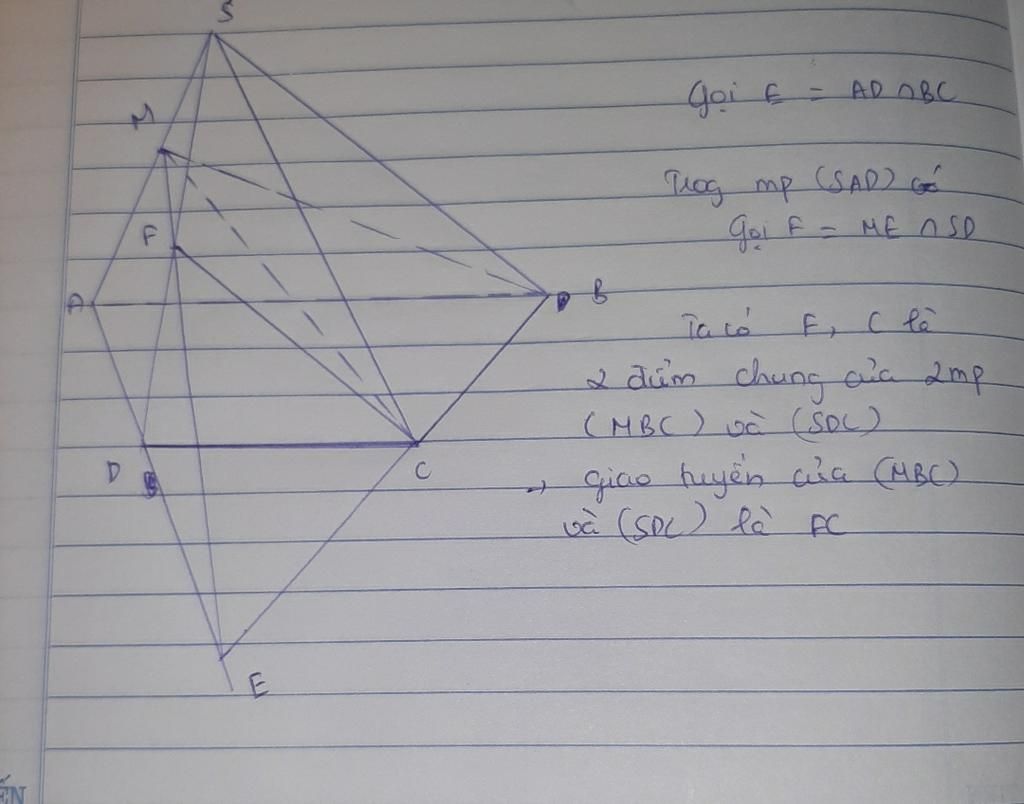 S
M
Gọi E = AD ∩ BC
Trog mp (SAD) có
F
Gọi F = ME ∩ SD
A
B
Ta có F, C là
2 điểm chung của 2mp
(MBC) và (SDC)
D
C
→ giao tuyến của (MBC)
và (SDC) là FC
E
ẾN